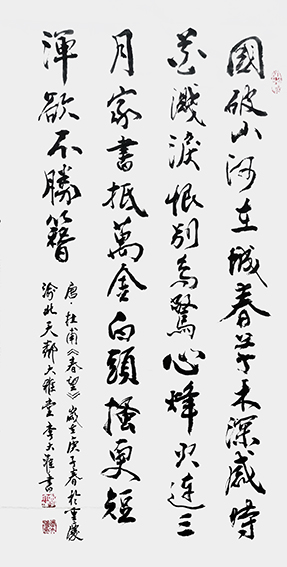 國破山河在城春草木深感時
花濺淚恨別鳥驚心烽火連三
月家書抵萬金白頭搔更短
渾欲不勝簪
唐·杜甫《春望》歲在庚子春於重慶
渝北天鄰大雅堂李大雅書